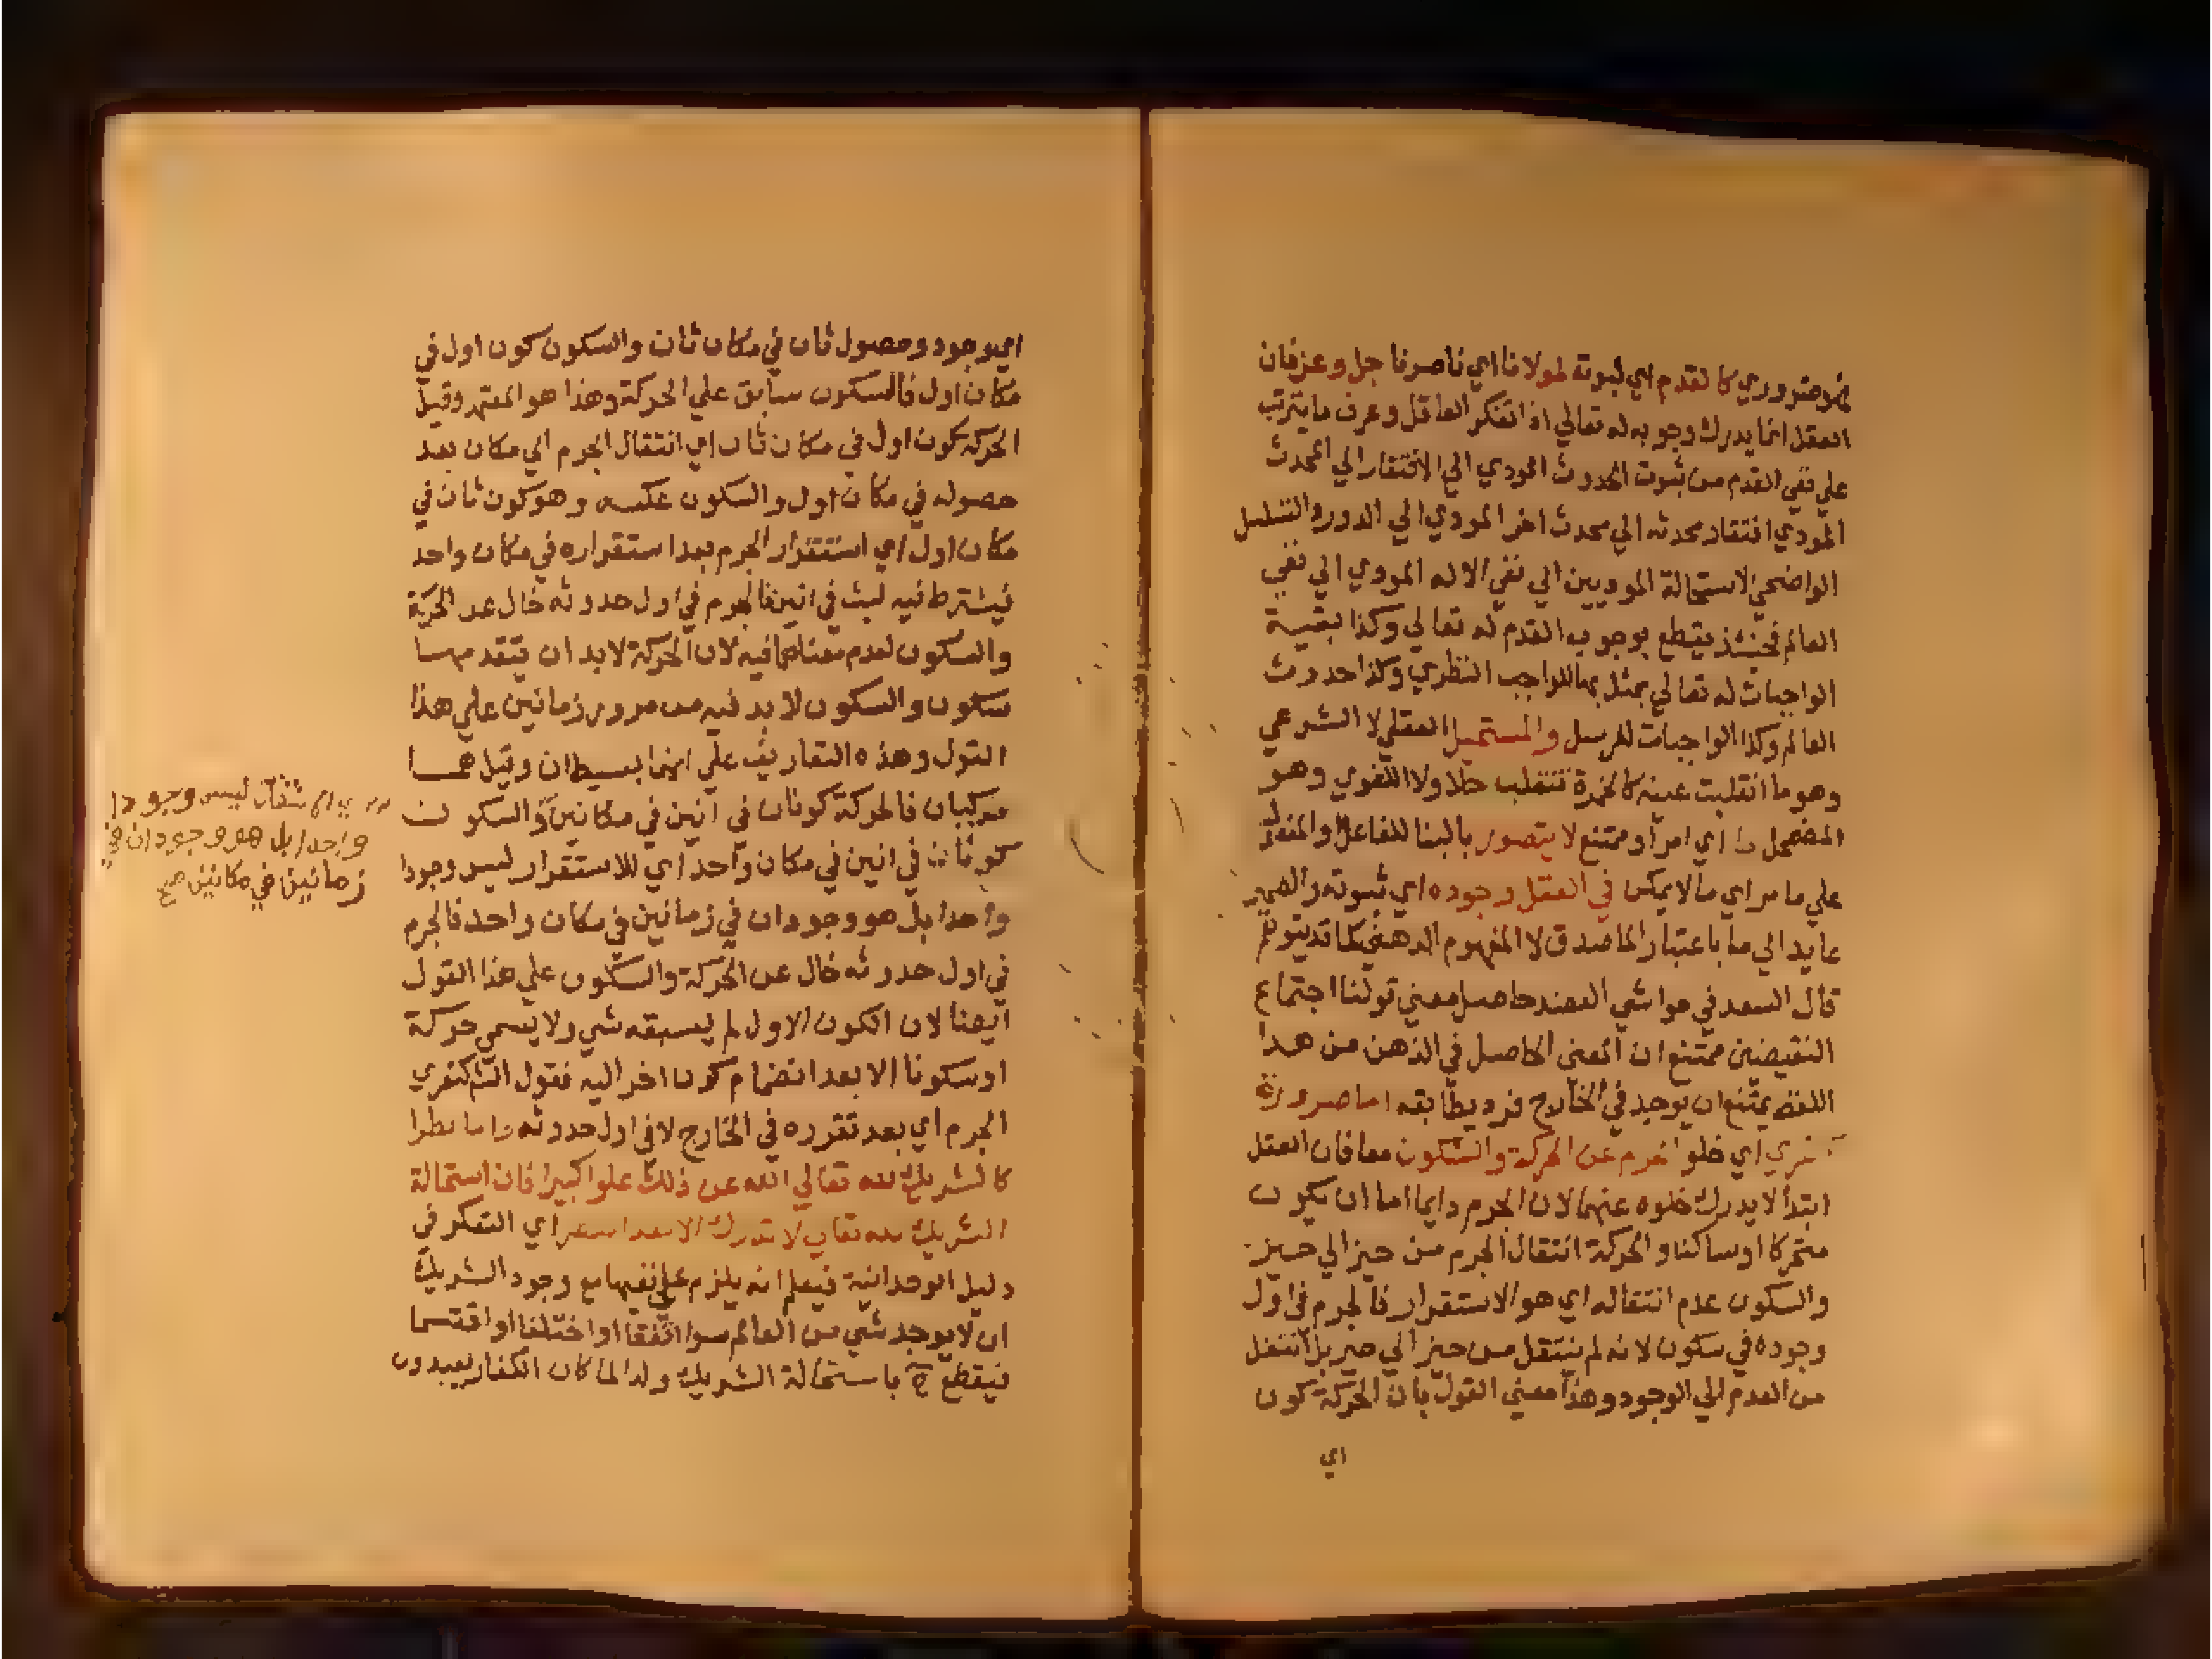 كالقدم اي ثبوته لمولانا اي ناصرنا جل وعز فان
العقل انما يدرك وجوبه له تعالي اذا تفكر العاقل وعرف ما يترتب
علي نفي القدم من ثبوت الحدوث المودي الي الافتقار الي المحدث
المودي افتقاد محدثه الي محدث اخر المودي الي الدور والتسلسل
الواضحي الاستحالة الموديين الي نفي الاله المودي الي نفي
العالم فحينئذ يقطع بوجوب القدم له تعالي وكذا بقية
الواجبات له تعالي يمثل بها للواجب النظري وكذا حدوث
العالم وكذا الواجبات للرسل والمستحيل العقلي لا الشرعي
وهو ما انقلبت عينه كالخمرة تنقلب خلا ولا اللغوي وهو
المضمحل اي امر او ممتنع لا يتصور بالبنا للفاعل والمفعول
علي ما مر اي ما لا يمكن في العقل وجوده اي ثبوته والضمير
عايد الي ما باعتبار الماصدق لا المفهوم الذهني كما قد يتوهم
قال السعد في حواشي العضد حاصل معني قولنا اجتماع
النقيضين ممتنع ان المعني الحاصل في الذهن من هذا
اللفظ يمتنع ان يوجد في الخارج فرد يطابقه اما ضرورة
اي خلو الجرم عن الحركة والسكون معا فان العقل
ابتدأ لا يدرك خلوه عنهما لان الجرم دايما اما ان يكون
متحركا او ساكنا والحركة انتقال الجرم من حيز الي حيز
والسكون عدم انتقاله اي هو الاستقرار فالجرم في اول
وجوده في سكون لانه لم ينتقل من حيز الي حيز بل انتقل
من العدم الي الوجود وهذا معني القول بان الحركة كون
اي
اي وجود وحصول ثان في مكان ثان والسكون كون اول في
مكان اول فالسكون سابق علي الحركة وهذا هو المعتمد وقيل
الحركة كون اول في مكان ثان اي انتقال الجرم الي مكان بعد
حصوله في مكان اول والسكون عكسه وهو كون ثان في
مكان اول اي استقرار الجرم بعد استقراره في مكان واحد
فيشترط فيه لبث في انين فالجرم في اول حدوثه خال عن الحركة
والسكون لعدم معناهما فيه لان الحركة لابد ان يتقدمها
سكون والسكون لابد فيه من مرور زمانين علي هذا
القول وهذه التعاريف علي انهما بسيطان وقيل هما
مركبان فالحركة كونان في انين في مكانين والسكون
كونان في انين في مكان واحد اي للاستقرار ليس وجودا
واحدا بل هو وجودان في زمانين في مكان واحد فالجرم
في اول حدوثه خال عن الحركة والسكون علي هذا القول
ايضا لان الكون الاول لم يسبقه شي ولا يسمي حركة
او سكونا الا بعد انضمام كون اخر اليه فقول الش كتعري
الجرم اي بعد تقرره في الخارج لا في اول حدوثه واما نظرا
كالشريك لله تعالي الله عن ذلك علوا كبيرا فان استحالة
الشريك لله تعالي لا تدرك الا بعد اي التفكر في
دليل الوحدانية فيعلم انه يلزم علي نفيها مع وجود الشريك
ان لا يوجد شي من العالم سوا اتفقا او اختلفا او اقتسما
فيقطع ح باستحالة الشريك ولذا لما كان الكفار يعبدون
الانتقال ليس وجودا
واحدا بل هو وجودان في
زمانين في مكانين صح